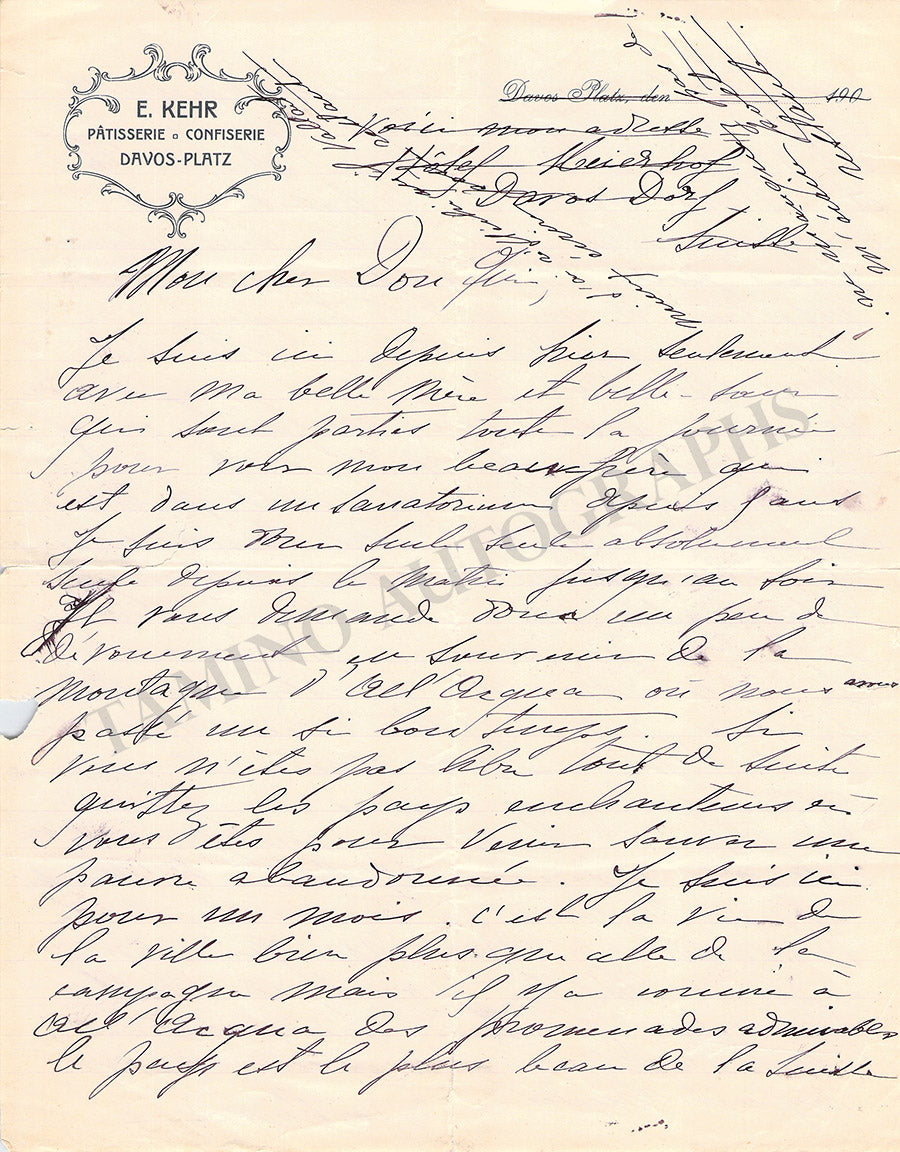 E. KEHR
PÂTISSERIE o CONFISERIE
DAVOS-PLATZ
Davos Platz, den 190
Voici mon adresse
Hôtel Meierhof
Davos Dorf
Suisse
Mon cher Don
Je suis ici depuis hier seulement
avec ma belle mère et belle-sœur
qui sont parties toute la journée
pour voir mon beau frère qui
est dans un sanatorium depuis 9 ans
Je suis donc seule absolument
seule depuis le matin jusqu'au soir
Je vous demande donc un peu de
dévouement en souvenir de la
montagne d'All'Acqua où nous avons
passé un si bon temps. Si
vous n'êtes pas libre tout de suite
quittez les pays enchanteurs où
vous êtes pour venir sauver une
pauvre abandonnée. Je suis ici
pour un mois. c'est la vie de
la ville bien plus que celle de la
campagne mais il y a comme à
All'Acqua des promenades admirables
le pays est le plus beau de la Suisse
TAMINO AUTOGRAPHS